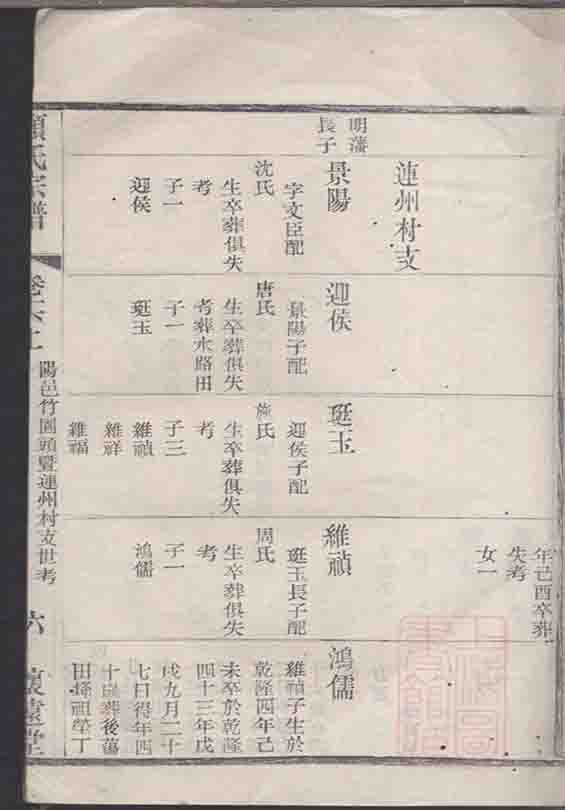 年己酉卒葬
失考
女一
連州村支
明藩
長子
景陽
字文臣配
沈氏
生卒葬俱失
考
子一
迎侯
迎侯
景陽子配
唐氏
生卒葬俱失
考葬水路田
子一
珽玉
珽玉
迎侯子配
施氏
生卒葬俱失
考
子三
維禎
維祥
維福
維禎
珽玉長子配
周氏
生卒葬俱失
考
子一
鴻儒
鴻儒
維禎子生於
乾隆四年己
未卒於乾隆
四十三年戊
戌九月二十
七日得年四
十歲葬後蕩
田祖塋丁
氏宗譜
陽邑竹園頭暨連州村支世考
六